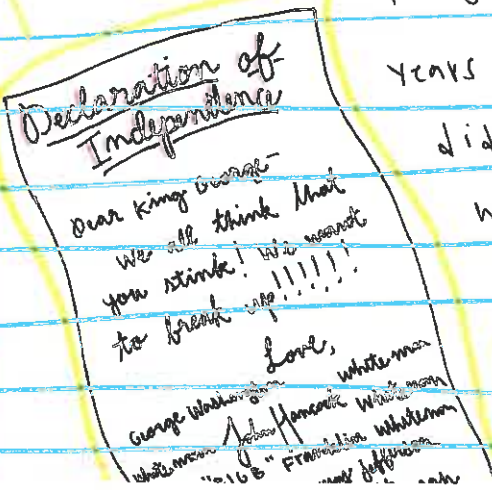 Declaration of
Independence
Dear King George-
We all think that
you stink! We want
to break up!!!!!!
Love,
George Washington white man
white man John Hancock white man
"BIGB" Franklin white man
Jefferson
years
did